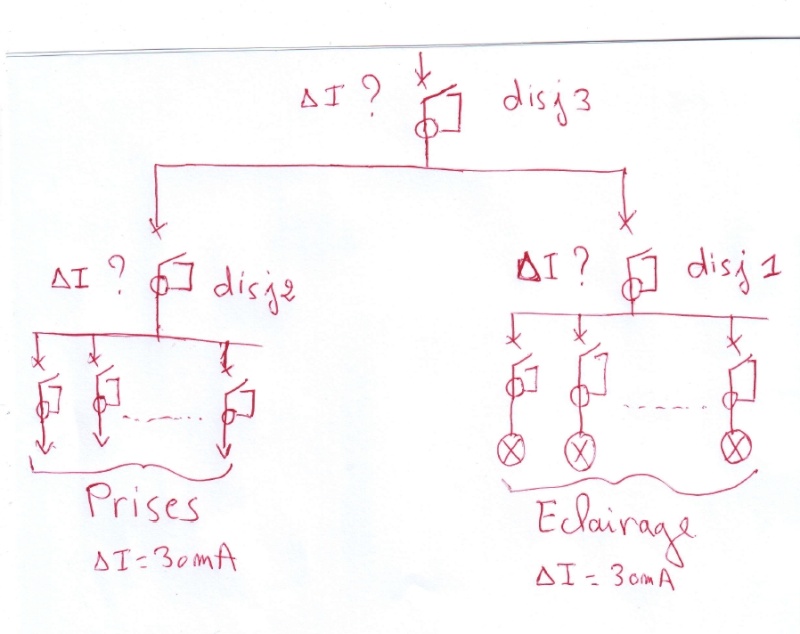 ΔI ? disj 3
ΔI ? disj2
ΔI ? disj 1
Prises
ΔI = 30mA
Eclairage
ΔI = 30mA